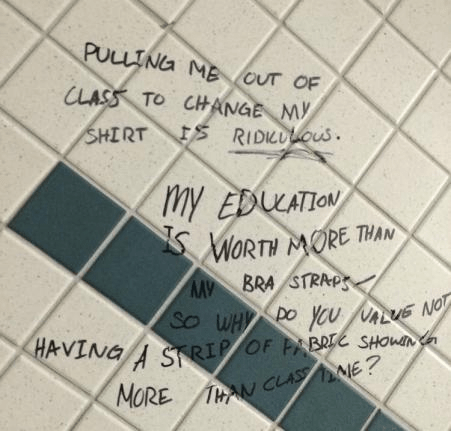 PULLING ME OUT OF
CLASS TO CHANGE MY
SHIRT IS RIDICULOUS.
MY EDUCATION
IS WORTH MORE THAN
MY BRA STRAPS—
SO WHY DO YOU VALUE NOT
HAVING A STRIP OF FABRIC SHOWING
MORE THAN CLASS TIME?